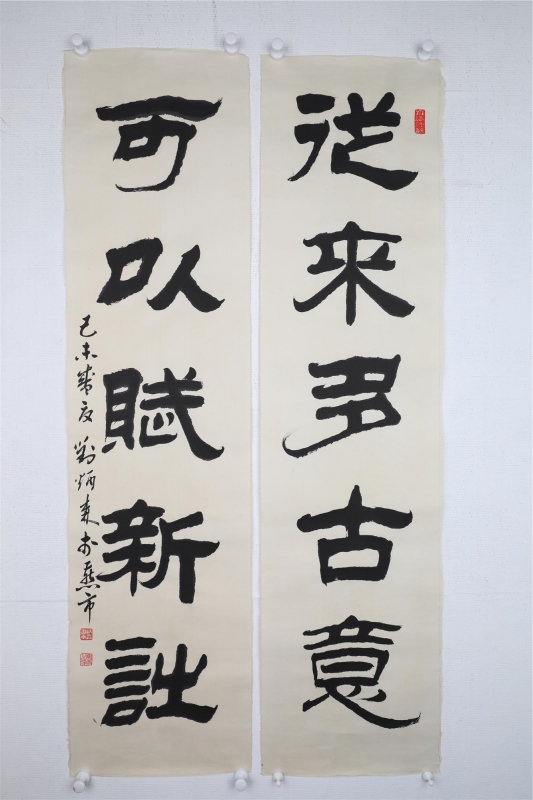 從來多古意
可以賦新詩
己未夏劉炳森於燕市